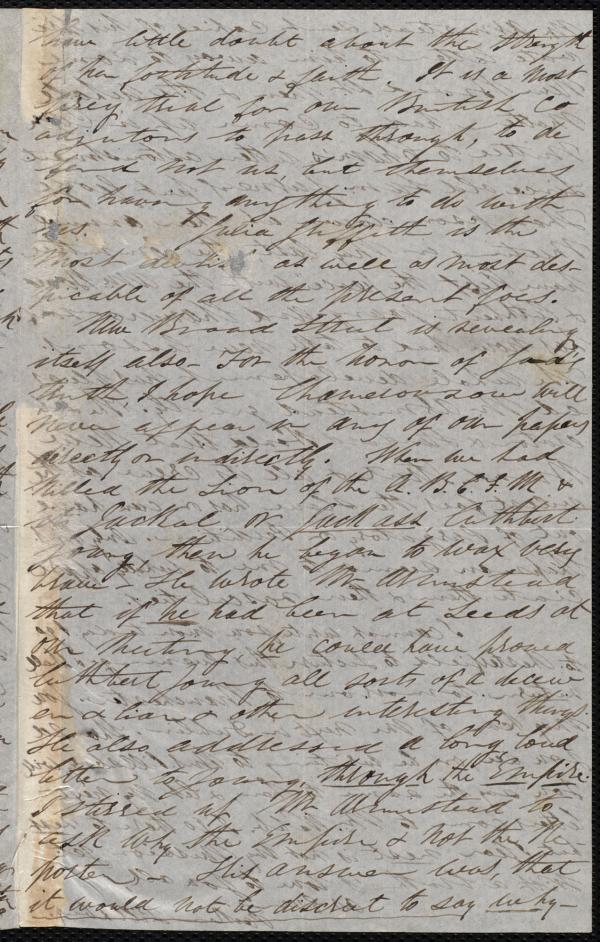 have little doubt about the strength
of her fortitude & faith. It is a most
fiery trial for our British Co
adjutors to pass through, to de
fend not us, but themselves
for having anything to do with
us. Julia Griffith is the
most as well as most des-
picable of all the present foes.
New Broad Street is revealing
itself also - For the honor of God's
truth I hope Chamerovzow will
never appear in any of our papers
directly or indirectly. When we had
killed the Lion of the A. B. C. F. M. &
its Jackal, or Jackass Cuthbert
Young, then he began to wax very
brave - He wrote Mr Armistead
that if he had been at Leeds at
our Meeting he could have proved
Cuthbert Young all sorts of a deceiv
er & liar & other interesting things.
He also addressed a long loud
letter to Young, through the Empire.
I stirred up Mr. Armistead to
ask why the Empire, & not the Re-
porter - His answer was, that
it would not be discreet to say why -